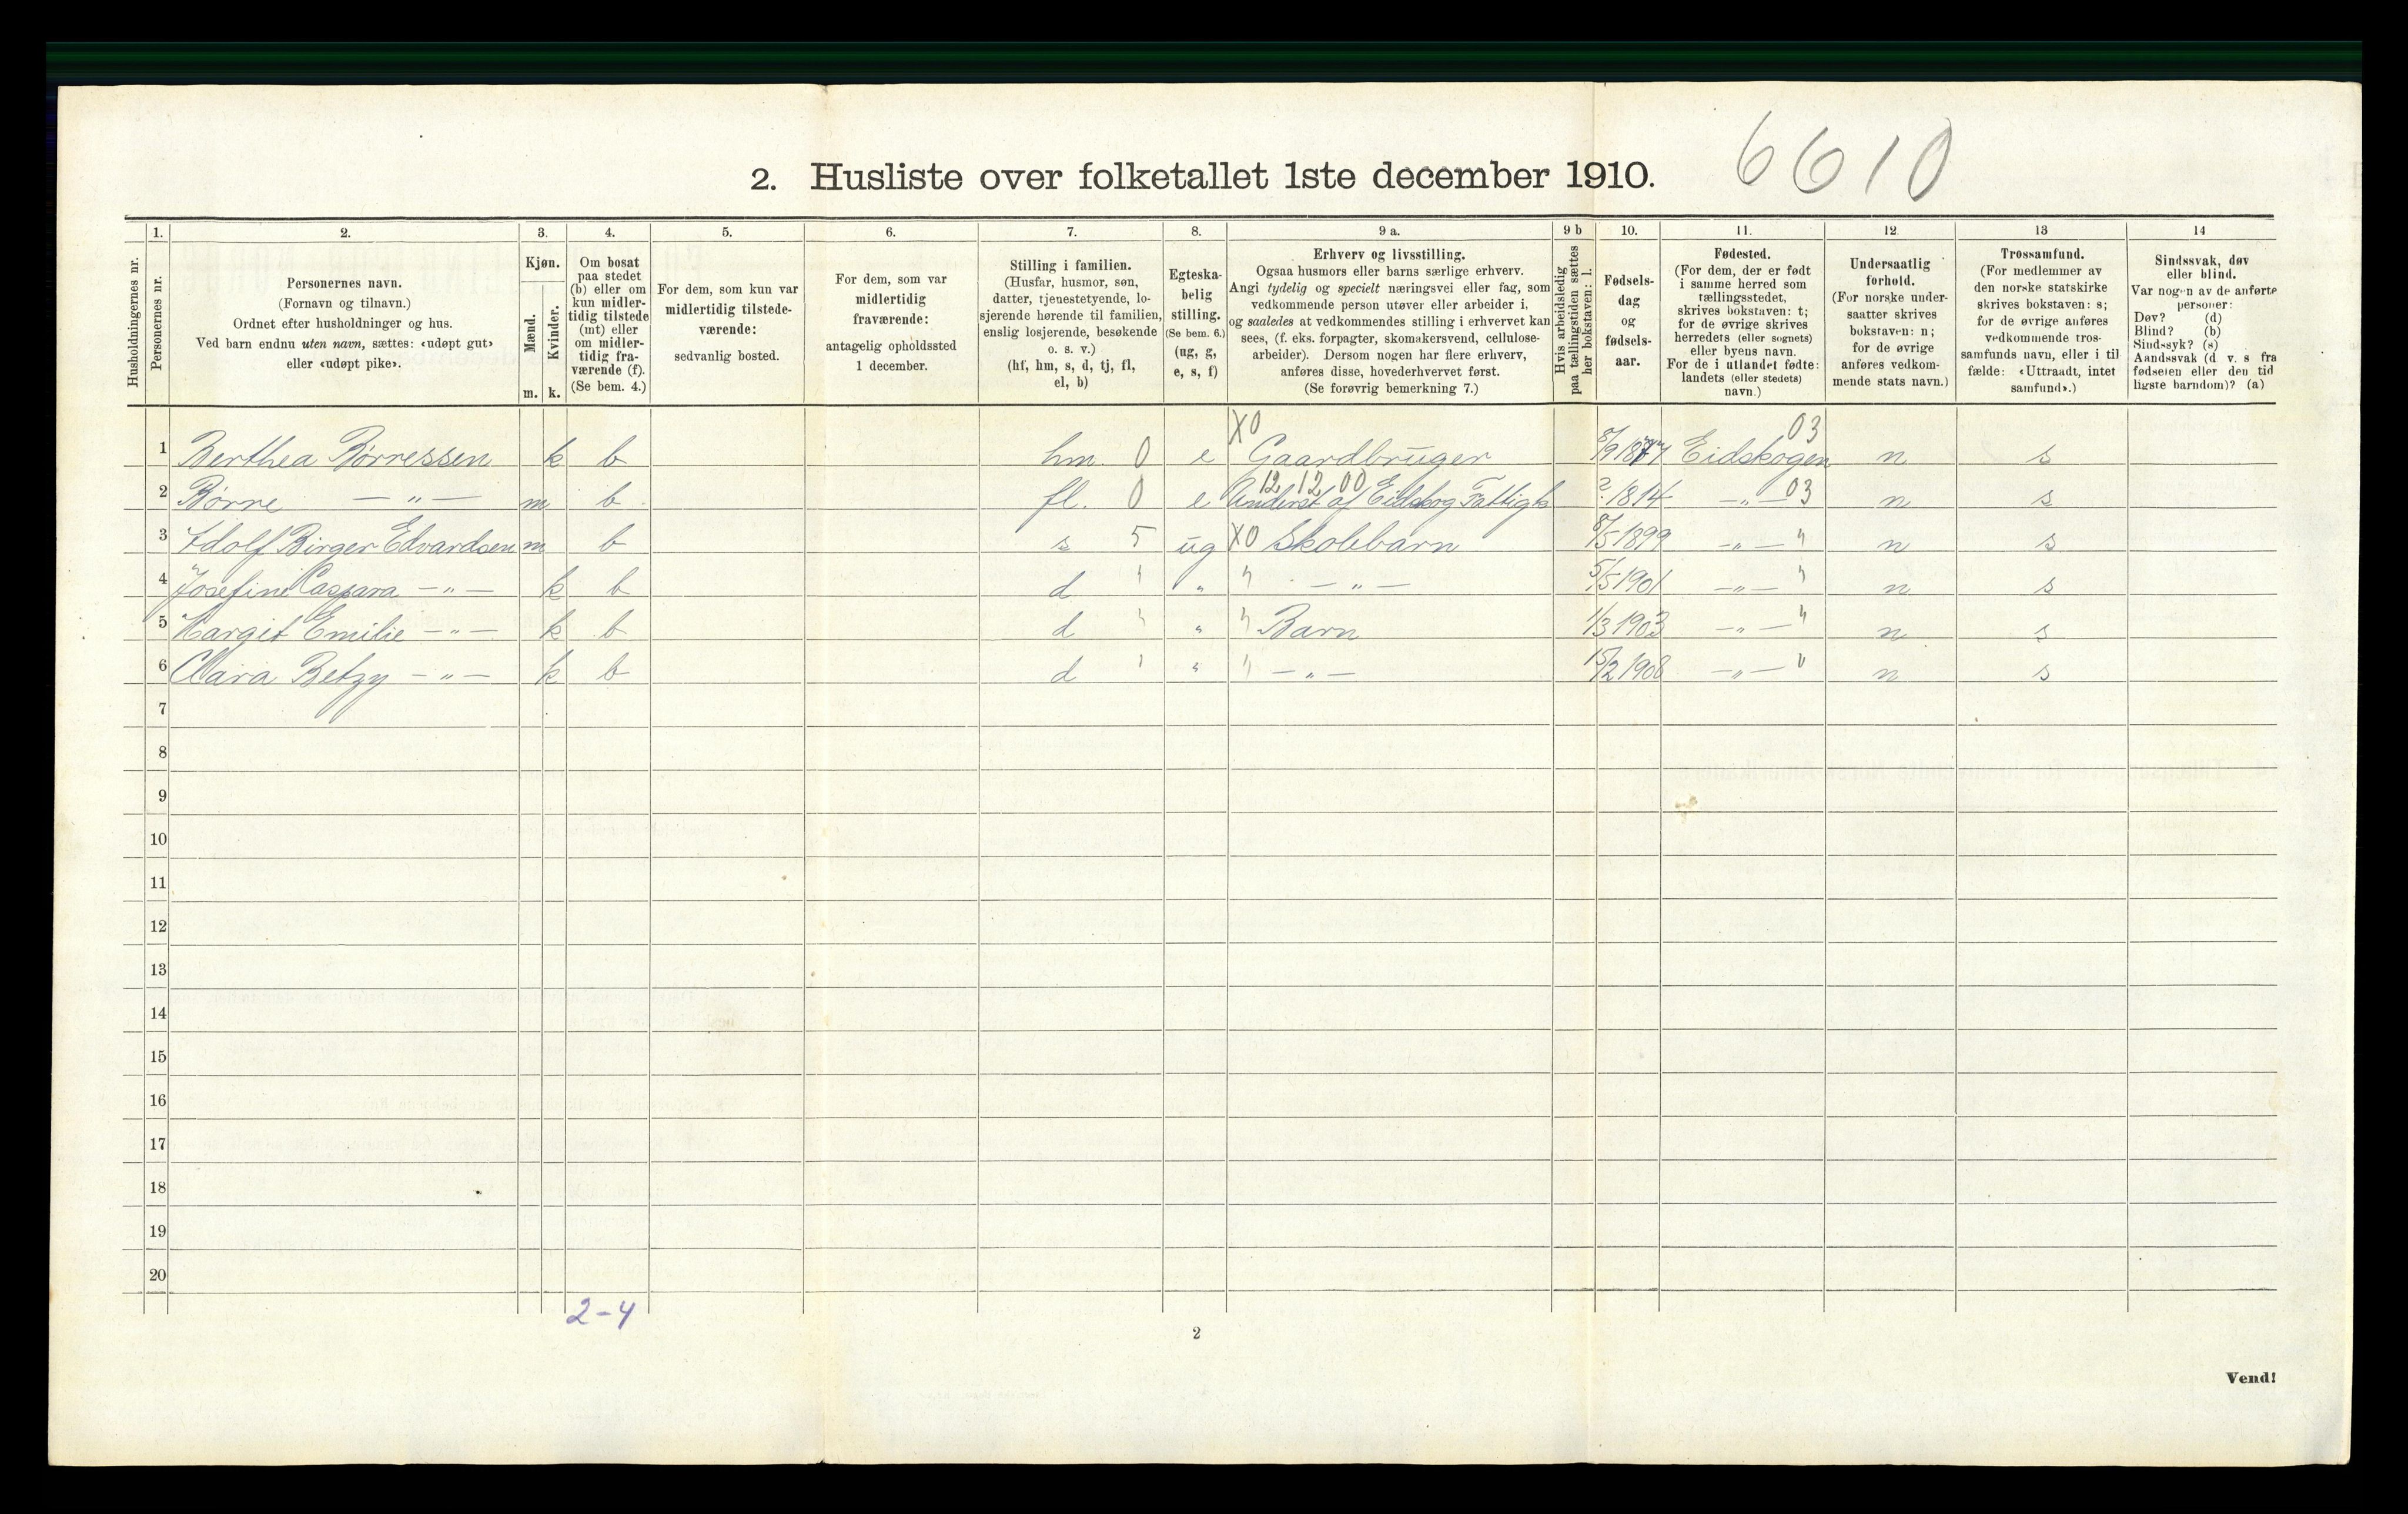 6610
2. Husliste over folketallet 1ste december 1910.
Husholdningernes nr.
1.
Personernes nr.
2.
Personernes navn.
(Fornavn og tilnavn.)
Ordnet efter husholdninger og hus.
Ved barn endnu uten navn, sættes: «udøpt gut»
eller «udøpt pike».
3.
Kjøn.
Mænd.
Kvinder.
m. k.
4.
Om bosat
paa stedet
(b) eller om
kun midler-
tidig tilstede
(mt) eller
om midler-
tidig fra-
værende (f).
(Se bem. 4.)
5.
For dem, som kun var
midlertidig tilstede-
værende:
sedvanlig bosted.
6.
For dem, som var
midlertidig
fraværende:
antagelig opholdssted
1 december.
7.
Stilling i familien.
(Husfar, husmor, søn,
datter, tjenestetyende, lo-
sjerende hørende til familien,
enslig losjerende, besøkende
o. s. v.)
(hf, hm, s, d, tj, fl,
el, b)
8.
Egteska-
belig
stilling.
(Se bem. 6.)
(ug, g,
e, s, f)
9 a.
Erhverv og livsstilling.
Ogsaa husmors eller barns særlige erhverv.
Angi tydelig og specielt næringsvei eller fag, som
vedkommende person utøver eller arbeider i,
og saaledes at vedkommendes stilling i erhvervet kan
sees, (f. eks. forpagter, skomakersvend, cellulose-
arbeider). Dersom nogen har flere erhverv,
anføres disse, hovederhvervet først.
(Se forøvrig bemerkning 7.)
9 b
Hvis arbeidsledig
paa tællingstiden sættes
her bokstaven: l.
10.
Fødsels-
dag
og
fødsels-
aar.
11.
Fødested.
(For dem, der er født
i samme herred som
tællingsstedet,
skrives bokstaven: t;
for de øvrige skrives
herredets (eller sognets)
eller byens navn.
For de i utlandet fødte:
landets (eller stedets)
navn.)
12.
Undersaatlig
forhold.
(For norske under-
saatter skrives
bokstaven: n;
for de øvrige
anføres vedkom-
mende stats navn.)
13
Trossamfund.
(For medlemmer av
den norske statskirke
skrives bokstaven: s;
for de øvrige anføres
vedkommende tros-
samfunds navn, eller i til
fælde: «Uttraadt, intet
samfund».)
14
Sindssvak, døv
eller blind.
Var nogen av de anførte
personer:
Døv? (d)
Blind? (b)
Sindssyk? (s)
Aandssvak (d. v. s. fra
fødselen eller den tid
ligste barndom)? (a)
X0 03
1 Berthea Børressen k b hm. 0 e Gaardbruger 8/9 Eidskogen n s
12 12 00
2 Børre —„— m b fl. 0 e af Eidskog ? 1814 —„— 03 n s
3 Adolf Birger Edvardsen m b s 5 ug X0 Skolebarn 8/5 1899 —„— " n s
4 Josefine Caspara —„— k b d " „ " —„— 5/5 1901 —„— " n s
5 Margit Emilie —„— k b d " „ " Barn 1/3 1903 —„— " n s
6 Clara Betzy —„— k b d " „ " —„— 15/2 1908 —„— " n s
7
8
9
10
11
12
13
14
15
16
17
18
19
20
2-4
2
Vend!